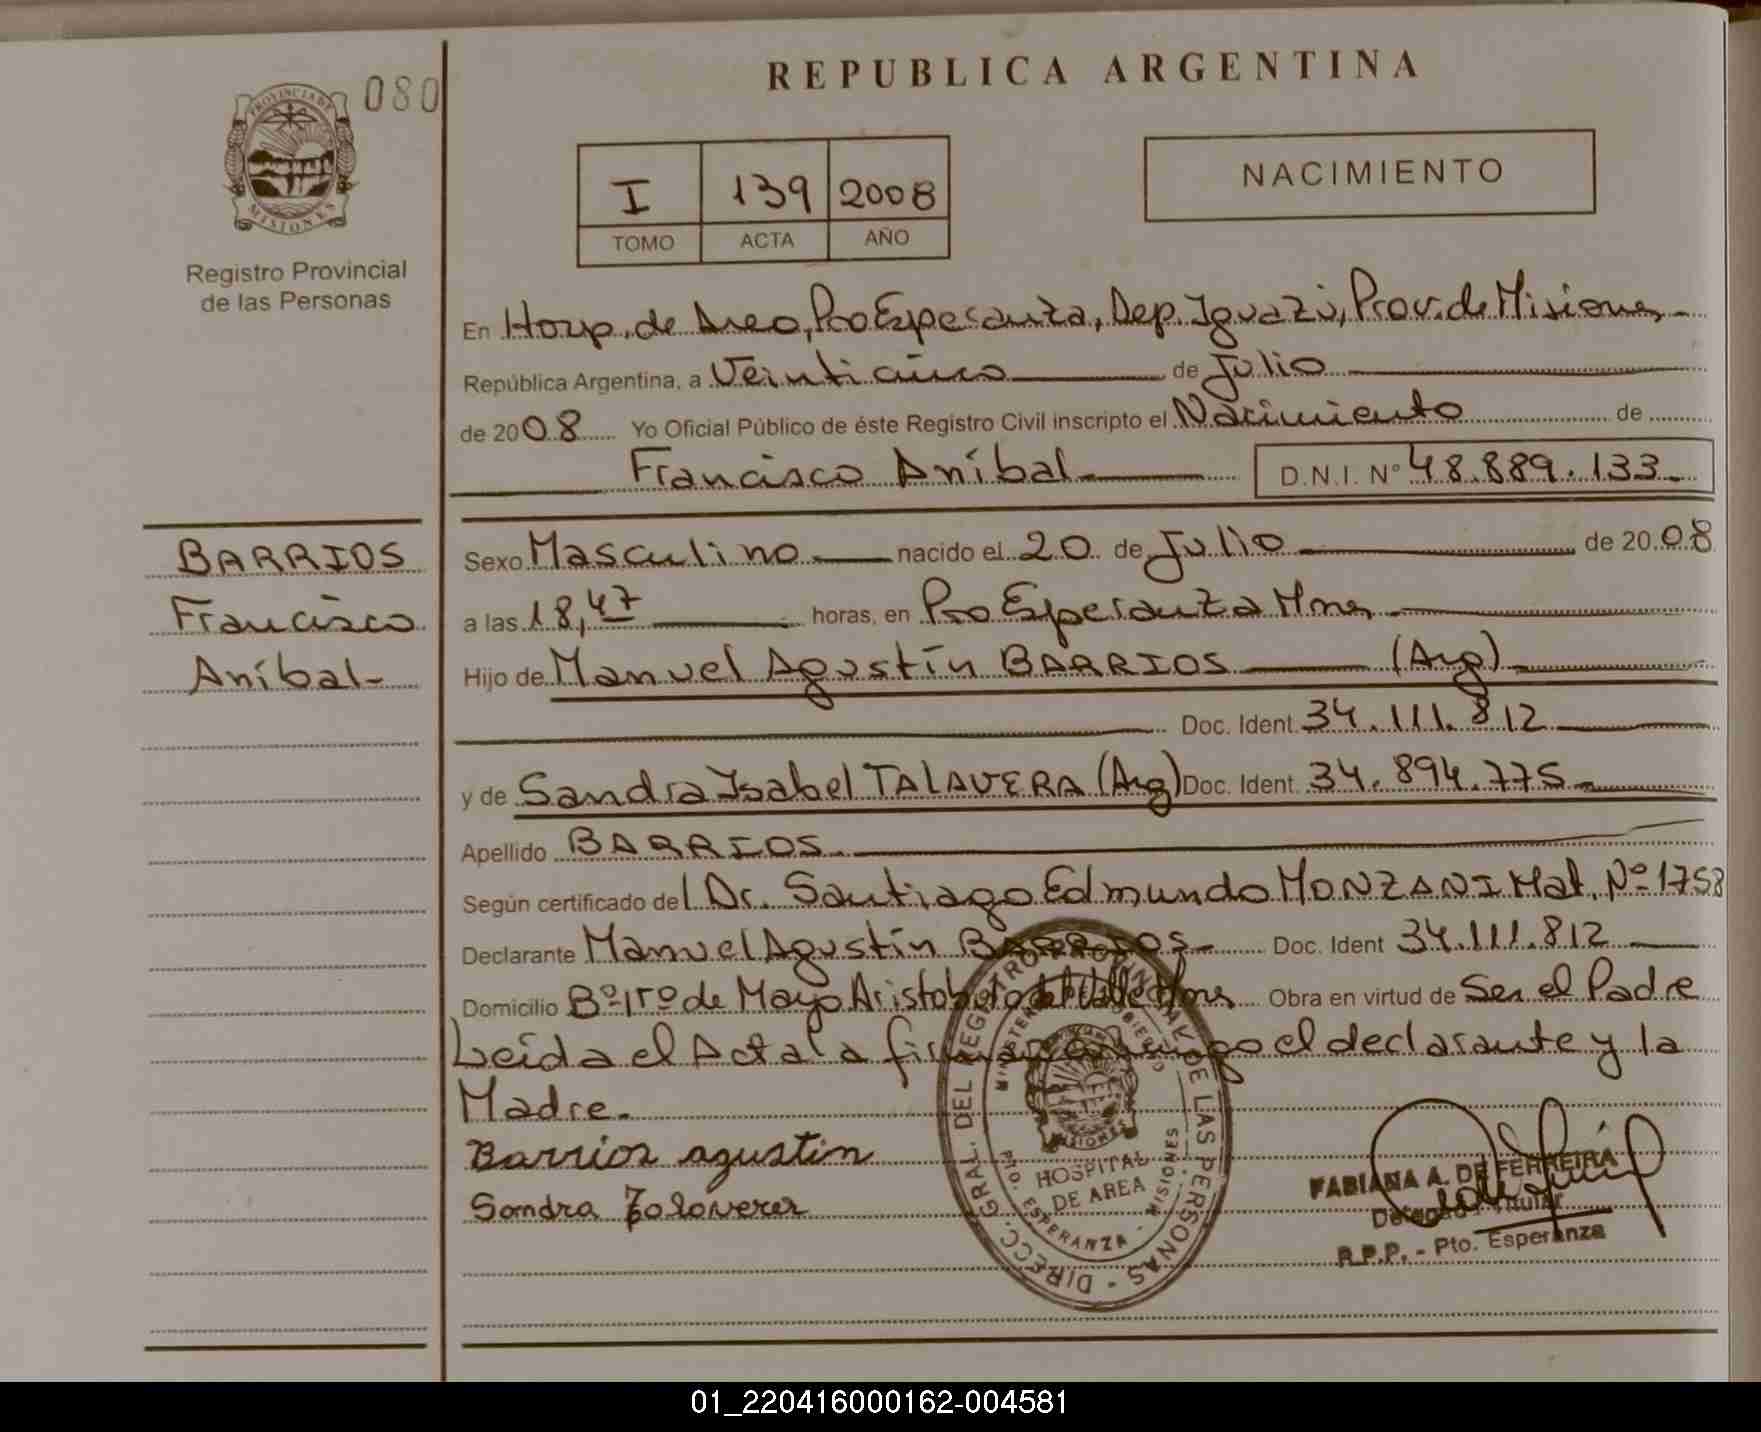 080
REPUBLICA ARGENTINA
PROVINCIA DE
MISIONES
Registro Provincial
de las Personas
I 139 2008
TOMO ACTA AÑO
NACIMIENTO
En Hosp. de Area, Pto Esperanza, Dep. Iguazú, Prov. de Misiones
República Argentina, a Veinticinco de Julio
de 2008 Yo Oficial Público de éste Registro Civil inscripto el Nacimiento de
Francisco Aníbal D.N.I. Nº 48.889.133
BARRIOS
Francisco
Aníbal
Sexo Masculino nacido el 20 de Julio de 2008
a las 18,47 horas, en Pto Esperanza Mnes
Hijo de Manuel Agustín BARRIOS (Arg)
Doc. Ident. 34.111.812
y de Sandra Isabel TALAVERA (Arg) Doc. Ident. 34.894.775
Apellido BARRIOS
Según certificado del Dr. Santiago Edmundo MONZANI Mat. Nº 1758
Declarante Manuel Agustín BARRIOS Doc. Ident 34.111.812
Domicilio Bº 1rº de Mayo Aristobulo del Valle Mnes Obra en virtud de Ser el Padre
Leída el Acta la firman conmigo el declarante y la
Madre.
Barrios agustin
Sandra Talavera
DIRECC. GRAL. DEL REGISTRO PROVINCIAL DE LAS PERSONAS
MINISTERIO DE GOBIERNO
MISIONES
HOSPITAL
DE AREA
PTO. ESPERANZA - MISIONES
FABIANA A. DE FERREIRA
Delegada Titular
R.P.P. - Pto. Esperanza
01_220416000162-004581